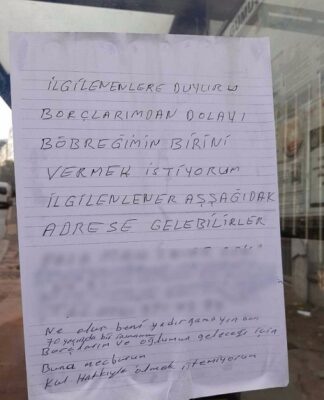 İLGİLENENLERE DUYURU
BORÇLARIMDAN DOLAYI
BÖBREĞİMİN BİRİNİ
VERMEK İSTİYORUM
İLGİLENLENER AŞŞAĞIDAK
ADRESE GELEBİLİRLER
Ne olur beni yadırgamayın ben
70 yaşında bir insanım
Borçlarım ve oğlumun geleceği için
Buna mecburum
Kul Hakkıyla ölmek istemiyorum